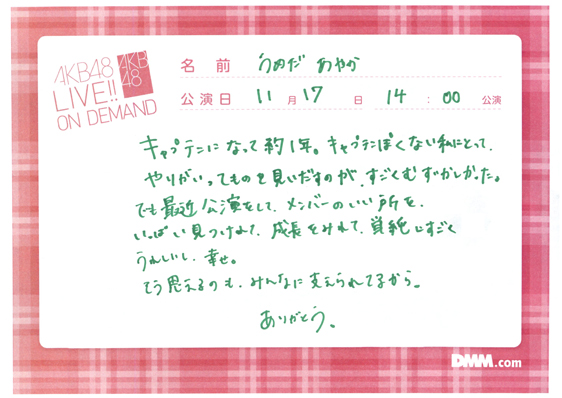 AKB48
LIVE!!
ON DEMAND
AKB
48
名前 うめだ あやか
公演日 11月17日 14:00公演
キャプテンになって約1年。キャプテンぽくない私にとって、
やりがいってものを見いだすのが、すごくむずかしかった。
でも最近公演をして、メンバーのいい所を、
いっぱい見つけれて、成長をみれて、覚絶しすごく
うれしいし、幸せ。
そう思えるのも、みんなに支えられてるから。
ありがとう。
DMM.com